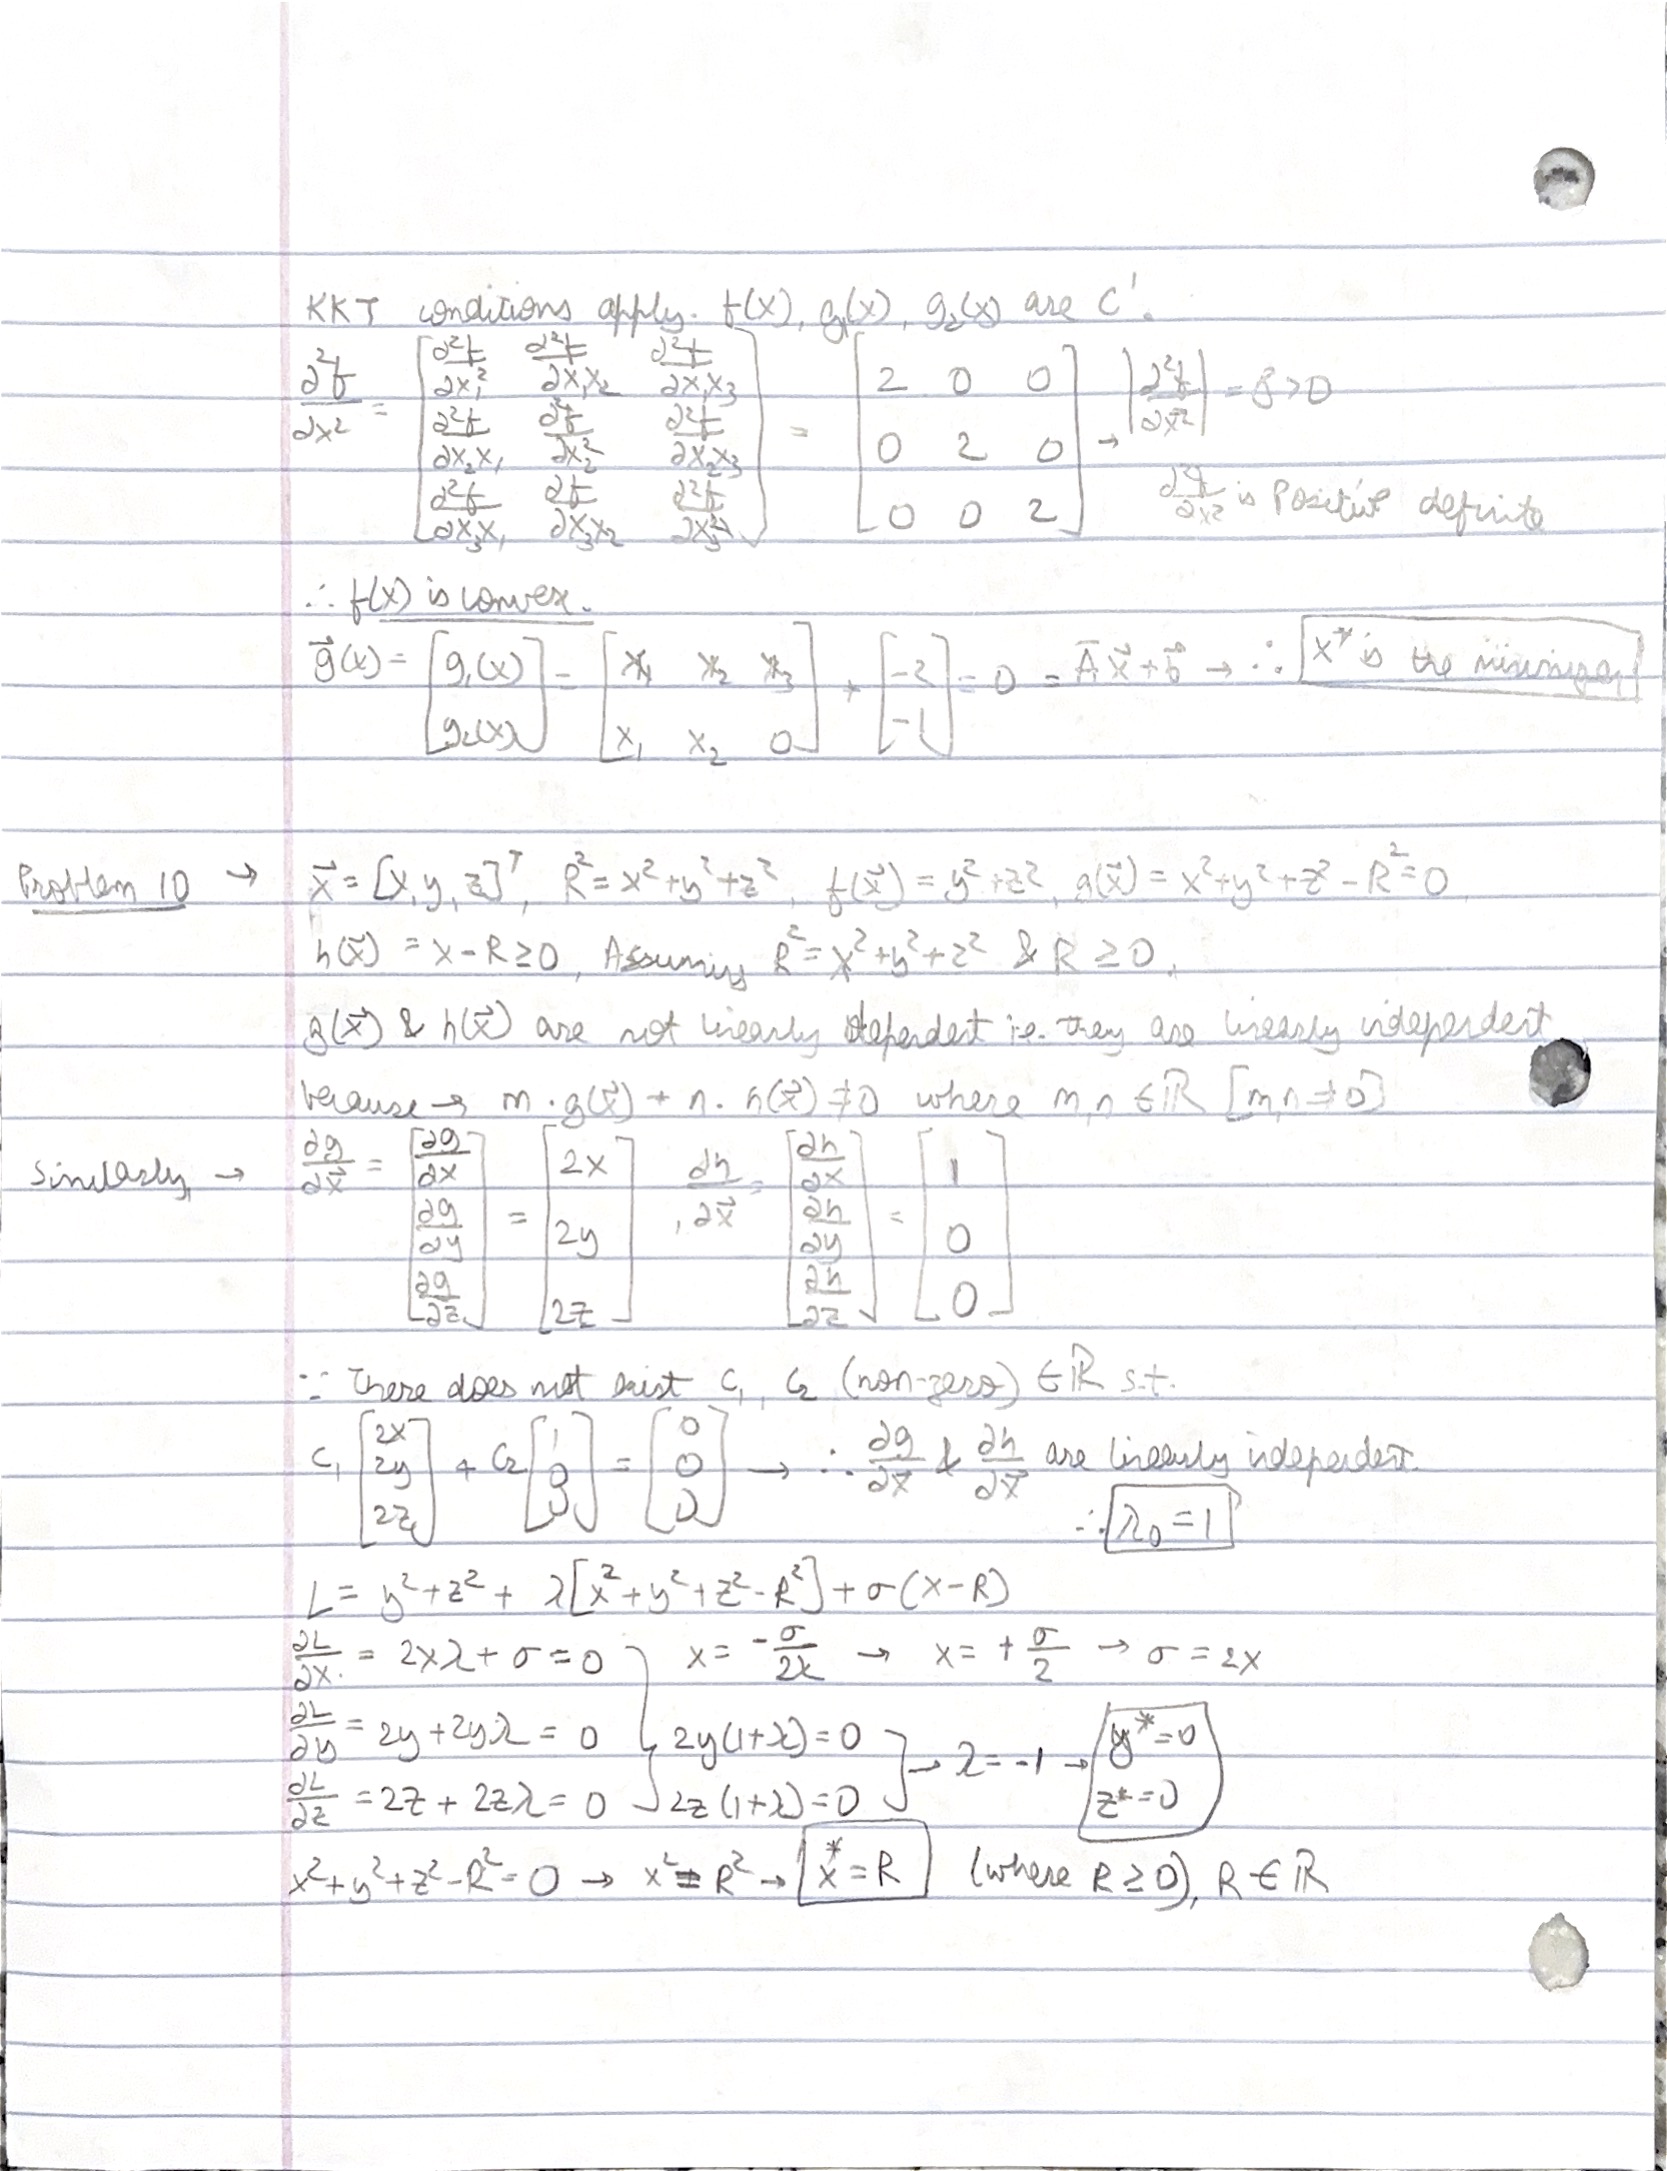 KKT conditions apply. f(x), g₁(x), g₂(x) are C'.
∂²f/∂x² = [∂²f/∂x₁² ∂²f/∂x₁x₂ ∂²f/∂x₁x₃; ∂²f/∂x₂x₁ ∂²f/∂x₂² ∂²f/∂x₂x₃; ∂²f/∂x₃x₁ ∂²f/∂x₃x₂ ∂²f/∂x₃²] = [2 0 0; 0 2 0; 0 0 2] → |∂²f/∂x²| = 8 > 0
∂²f/∂x² is Positive definite
∴ f(x) is convex.
g⃗(x) = [g₁(x); g₂(x)] = [x₁ x₂ x₃; x₁ x₂ 0] + [-2; -1] = 0 = A̅x⃗ + b⃗ → ∴ x* is the minimizer
Problem 10 → x⃗ = [x, y, z]ᵀ, R² = x²+y²+z², f(x⃗) = y²+z², g(x⃗) = x²+y²+z²-R²=0
h(x⃗) = x-R≥0, Assuming R² = x²+y²+z² & R ≥ 0.
g(x⃗) & h(x⃗) are not linearly dependent i.e. they are linearly independent
because → m·g(x⃗) + n·h(x⃗) ≠ 0 where m,n ∈ ℝ [m,n ≠ 0]
Similarly, → ∂g/∂x⃗ = [∂g/∂x; ∂g/∂y; ∂g/∂z] = [2x; 2y; 2z], ∂h/∂x⃗ = [∂h/∂x; ∂h/∂y; ∂h/∂z] = [1; 0; 0]
∵ There does not exist c₁, c₂ (non-zero) ∈ ℝ s.t.
c₁[2x; 2y; 2z] + c₂[1; 0; 0] = [0; 0; 0] → ∴ ∂g/∂x⃗ & ∂h/∂x⃗ are linearly independent.
∴ λ₀ = 1
L = y²+z² + λ[x²+y²+z²-R²] + σ(x-R)
∂L/∂x = 2xλ + σ = 0 x = -σ/2λ → x = +σ/2 → σ = 2x
∂L/∂y = 2y + 2yλ = 0 2y(1+λ) = 0 → λ = -1 → y* = 0
∂L/∂z = 2z + 2zλ = 0 2z(1+λ) = 0 z* = 0
x²+y²+z²-R² = 0 → x² = R² → x* = R (where R ≥ 0), R ∈ ℝ